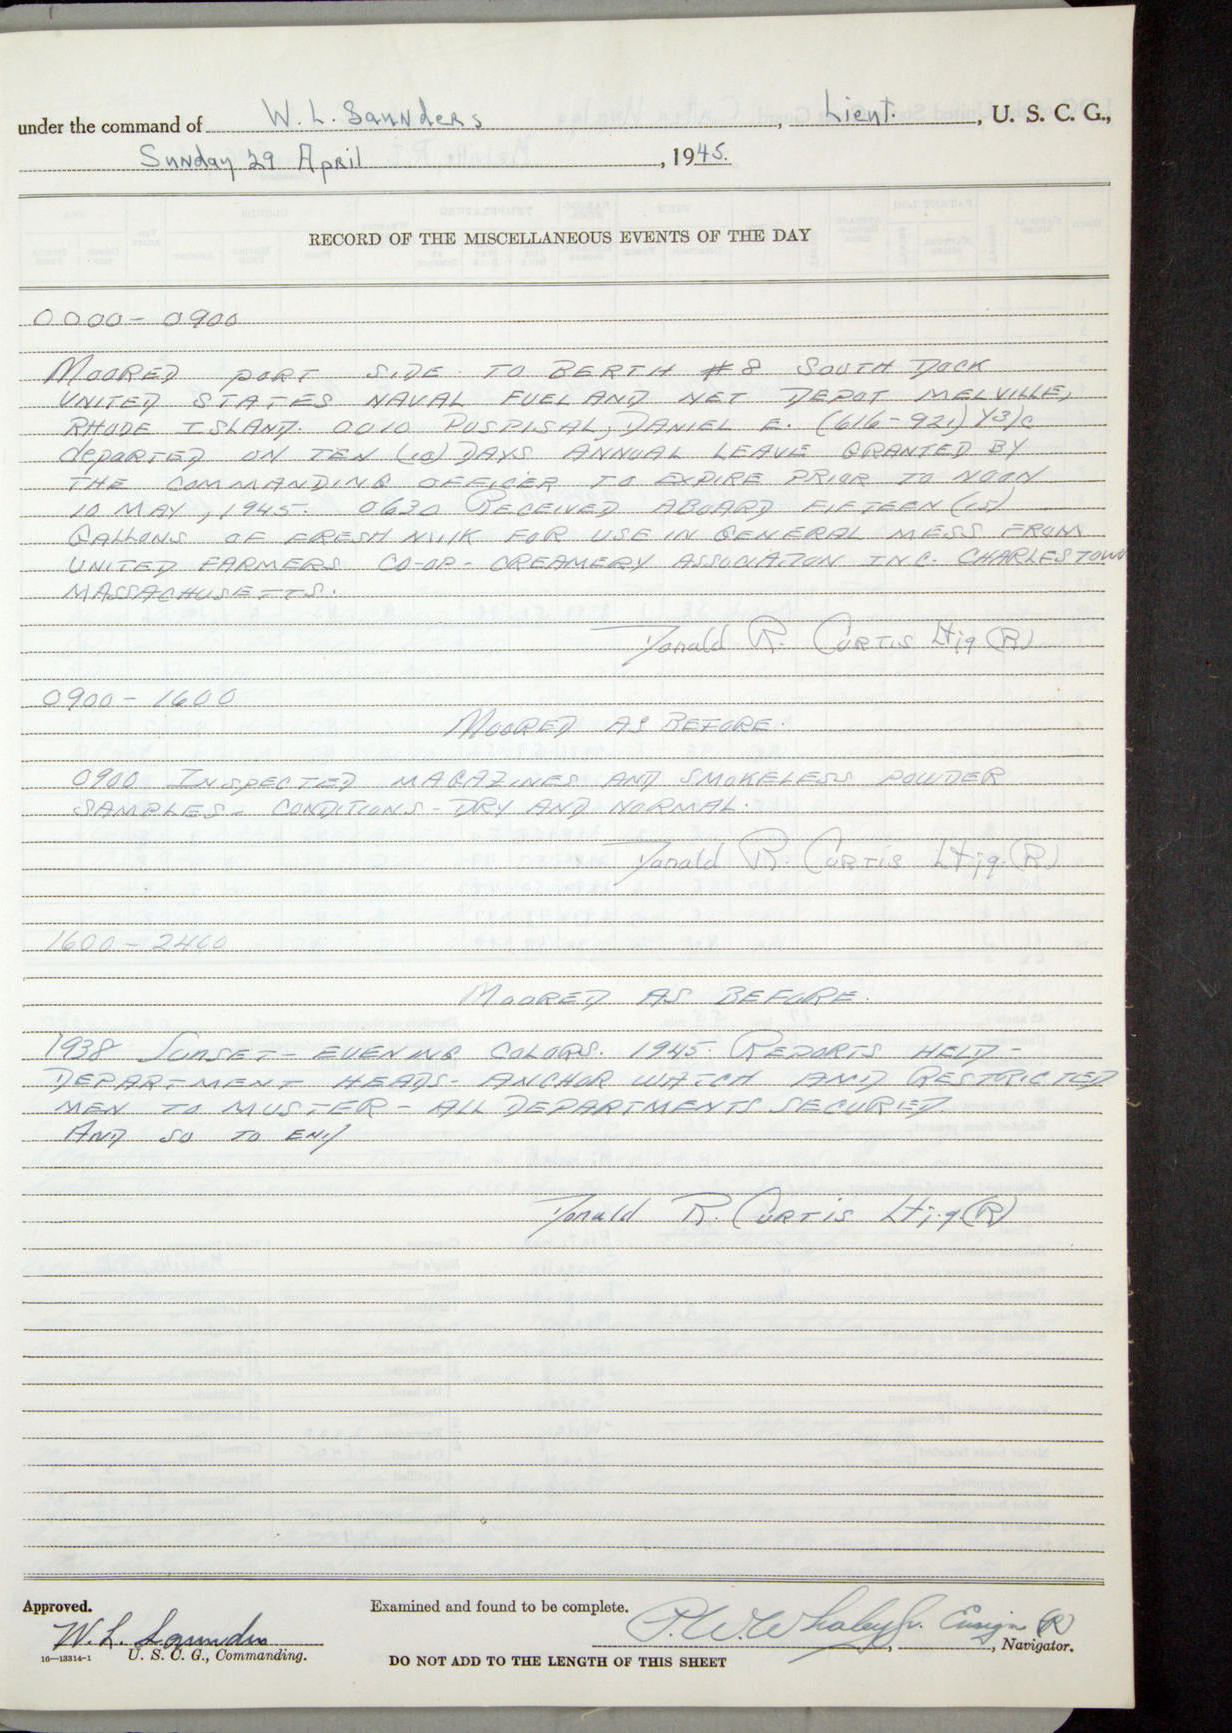 under the command of W. L. Saunders, Lieut., U. S. C. G.,
Sunday 29 April, 1945.
RECORD OF THE MISCELLANEOUS EVENTS OF THE DAY
0000 - 0900
MOORED PORT SIDE TO BERTH #8 SOUTH DOCK
UNITED STATES NAVAL FUEL AND NET DEPOT MELVILLE,
RHODE ISLAND. 0010 POSPISAL, DANIEL E. (616-921) Y3/c
departed ON TEN (10) DAYS ANNUAL LEAVE GRANTED BY
THE COMMANDING OFFICER TO EXPIRE PRIOR TO NOON
10 MAY, 1945. 0630 RECEIVED ABOARD FIFTEEN (15)
GALLONS OF FRESH MILK FOR USE IN GENERAL MESS FROM
UNITED FARMERS CO-OP - CREAMERY ASSOCIATION INC. CHARLESTOWN
MASSACHUSETTS.
Donald R. Curtis Ltjg (R)
0900 - 1600
MOORED AS BEFORE.
0900 INSPECTED MAGAZINES AND SMOKELESS POWDER
SAMPLES - CONDITIONS - DRY AND NORMAL.
Donald R. Curtis Ltjg. (R)
1600 - 2400
MOORED AS BEFORE.
1938 SUNSET - EVENING COLORS. 1945. REPORTS HELD -
DEPARTMENT HEADS - ANCHOR WATCH AND RESTRICTED
MEN TO MUSTER - ALL DEPARTMENTS SECURED.
AND SO TO END
Donald R. Curtis Ltj.g. (R)
Approved. Examined and found to be complete.
W. L. Saunders P. W. Whaley Jr. Ensign (R)
U. S. C. G., Commanding. , , Navigator.
16—13314-1 DO NOT ADD TO THE LENGTH OF THIS SHEET